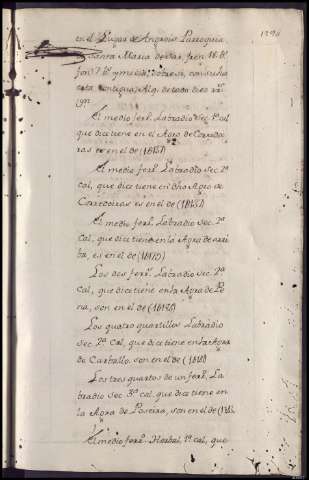 en el Lugar de Angrois Parroquia
Santa Maria de Sar, fren. 18. bs.
fon. 7. bs. y media
esta contigua. Alq. de todo diez rrs.
von.
El medio ferl. Labradio sec. 1ª cal.
que dice tiene en el Agro de Corredoi-
ras es en el de (181
El medio ferl. Labradio sec. 2ª
cal, que dice tiene en dho Agro de
Corredoiras es en el de (181
El medio ferl. Labradio sec. 2ª
Cal, que dice tiene en la Agra de arri-
ba, es en el de (181
Los dos ferl. Labradio sec. 2ª
Cal, que dice tiene en la Agra de Pe-
na, son en el de (181
Los quatro quartillos Labradio
sec. 2ª Cal, que dice tiene en la Agra
de Carballo, son en el de (181
Los tres quartos de un ferl. La-
bradio sec. 3ª cal. que dice tiene en
la Agra de Poseira, son en el de (181
El medio ferl. Herbal, 1ª cal, que